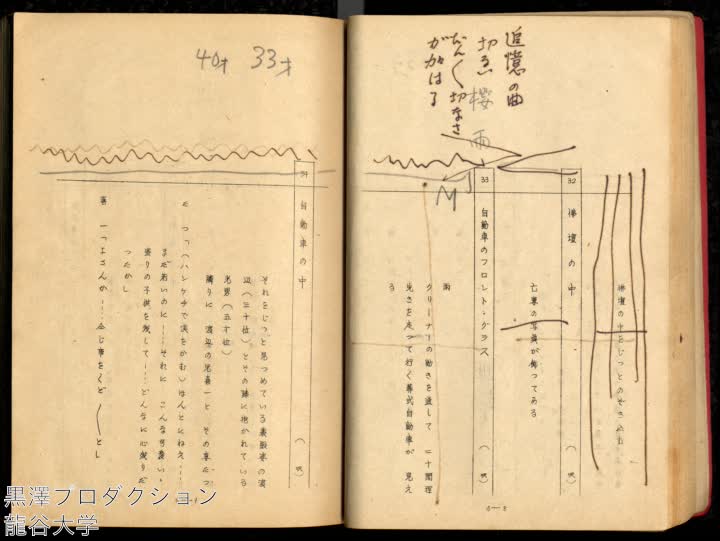 追憶の曲
切る
櫻
雨
だん〱切なさ
が加はる
MJ
佛壇の中をじつとのぞき込む
32 佛壇の中 (
亡妻の写真が飾つてある
33 自動車のフロント・グラス (
雨
クリーナーの動きを通して 二十間程
先きを走つて行く葬式自動車が 見え
る
33才
40才
34 自動車の中 (
それをじつと見つめている喪服姿の渡
辺(三十位)とその膝に抱かれている
光男(五才位)
隣りに 渡辺の兄喜一と その妻たつ
たつ「(ハンケチで涙をかむ)ほんとにねえ…
まだ若いのに……それに こんな可愛い
盛りの子供を残して……どんなに心残りだ
つたかし
喜一「よさんか……
黒澤プロダクション
龍谷大学